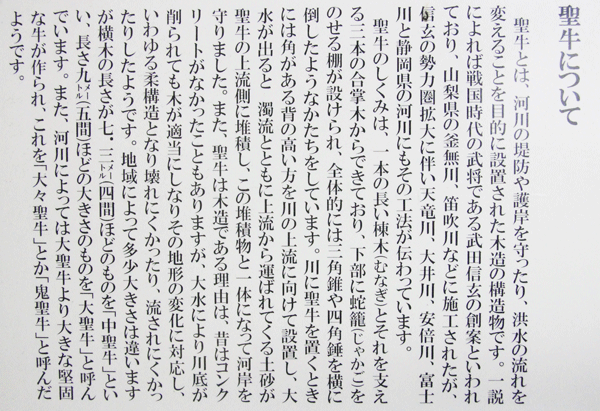 聖牛について
聖牛とは、河川の堤防や護岸を守ったり、洪水の流れを
変えることを目的に設置された木造の構造物です。一説
によれば戦国時代の武将である武田信玄の創案といわれ
ており、山梨県の釜無川、笛吹川などに施工されたが、
信玄の勢力圏拡大に伴い天竜川、大井川、安倍川、富士
川と静岡県の河川にもその工法が伝わっています。
聖牛のしくみは、一本の長い棟木(むなぎ)とそれを支え
る三本の合掌木からできており、下部に蛇籠(じゃかご)を
のせる棚が設けられ、全体的には三角錐や四角錘を横に
倒したようなかたちをしています。川に聖牛を置くとき
には角がある背の高い方を川の上流に向けて設置し、大
水が出ると 濁流とともに上流から運ばれてくる土砂が
聖牛の上流側に堆積し、この堆積物と一体になって河岸を
守りました。また、聖牛は木造である理由は、昔はコンク
リートがなかったこともありますが、大水により川底が
削られても木が適当にしなりその地形の変化に対応し、
いわゆる柔構造となり壊れにくかったり、流されにくかっ
たりしたようです。地域によって多少大きさは違います
が横木の長さが七、三メートル(四間)ほどのものを「中聖牛」とい
い、長さ九メートル(五間)ほどの大きさのものを「大聖牛」と呼ん
でいます。また、河川によっては大聖牛より大きな堅固
な牛が作られ、これを「大々聖牛」とか「鬼聖牛」と呼んだ
ようです。